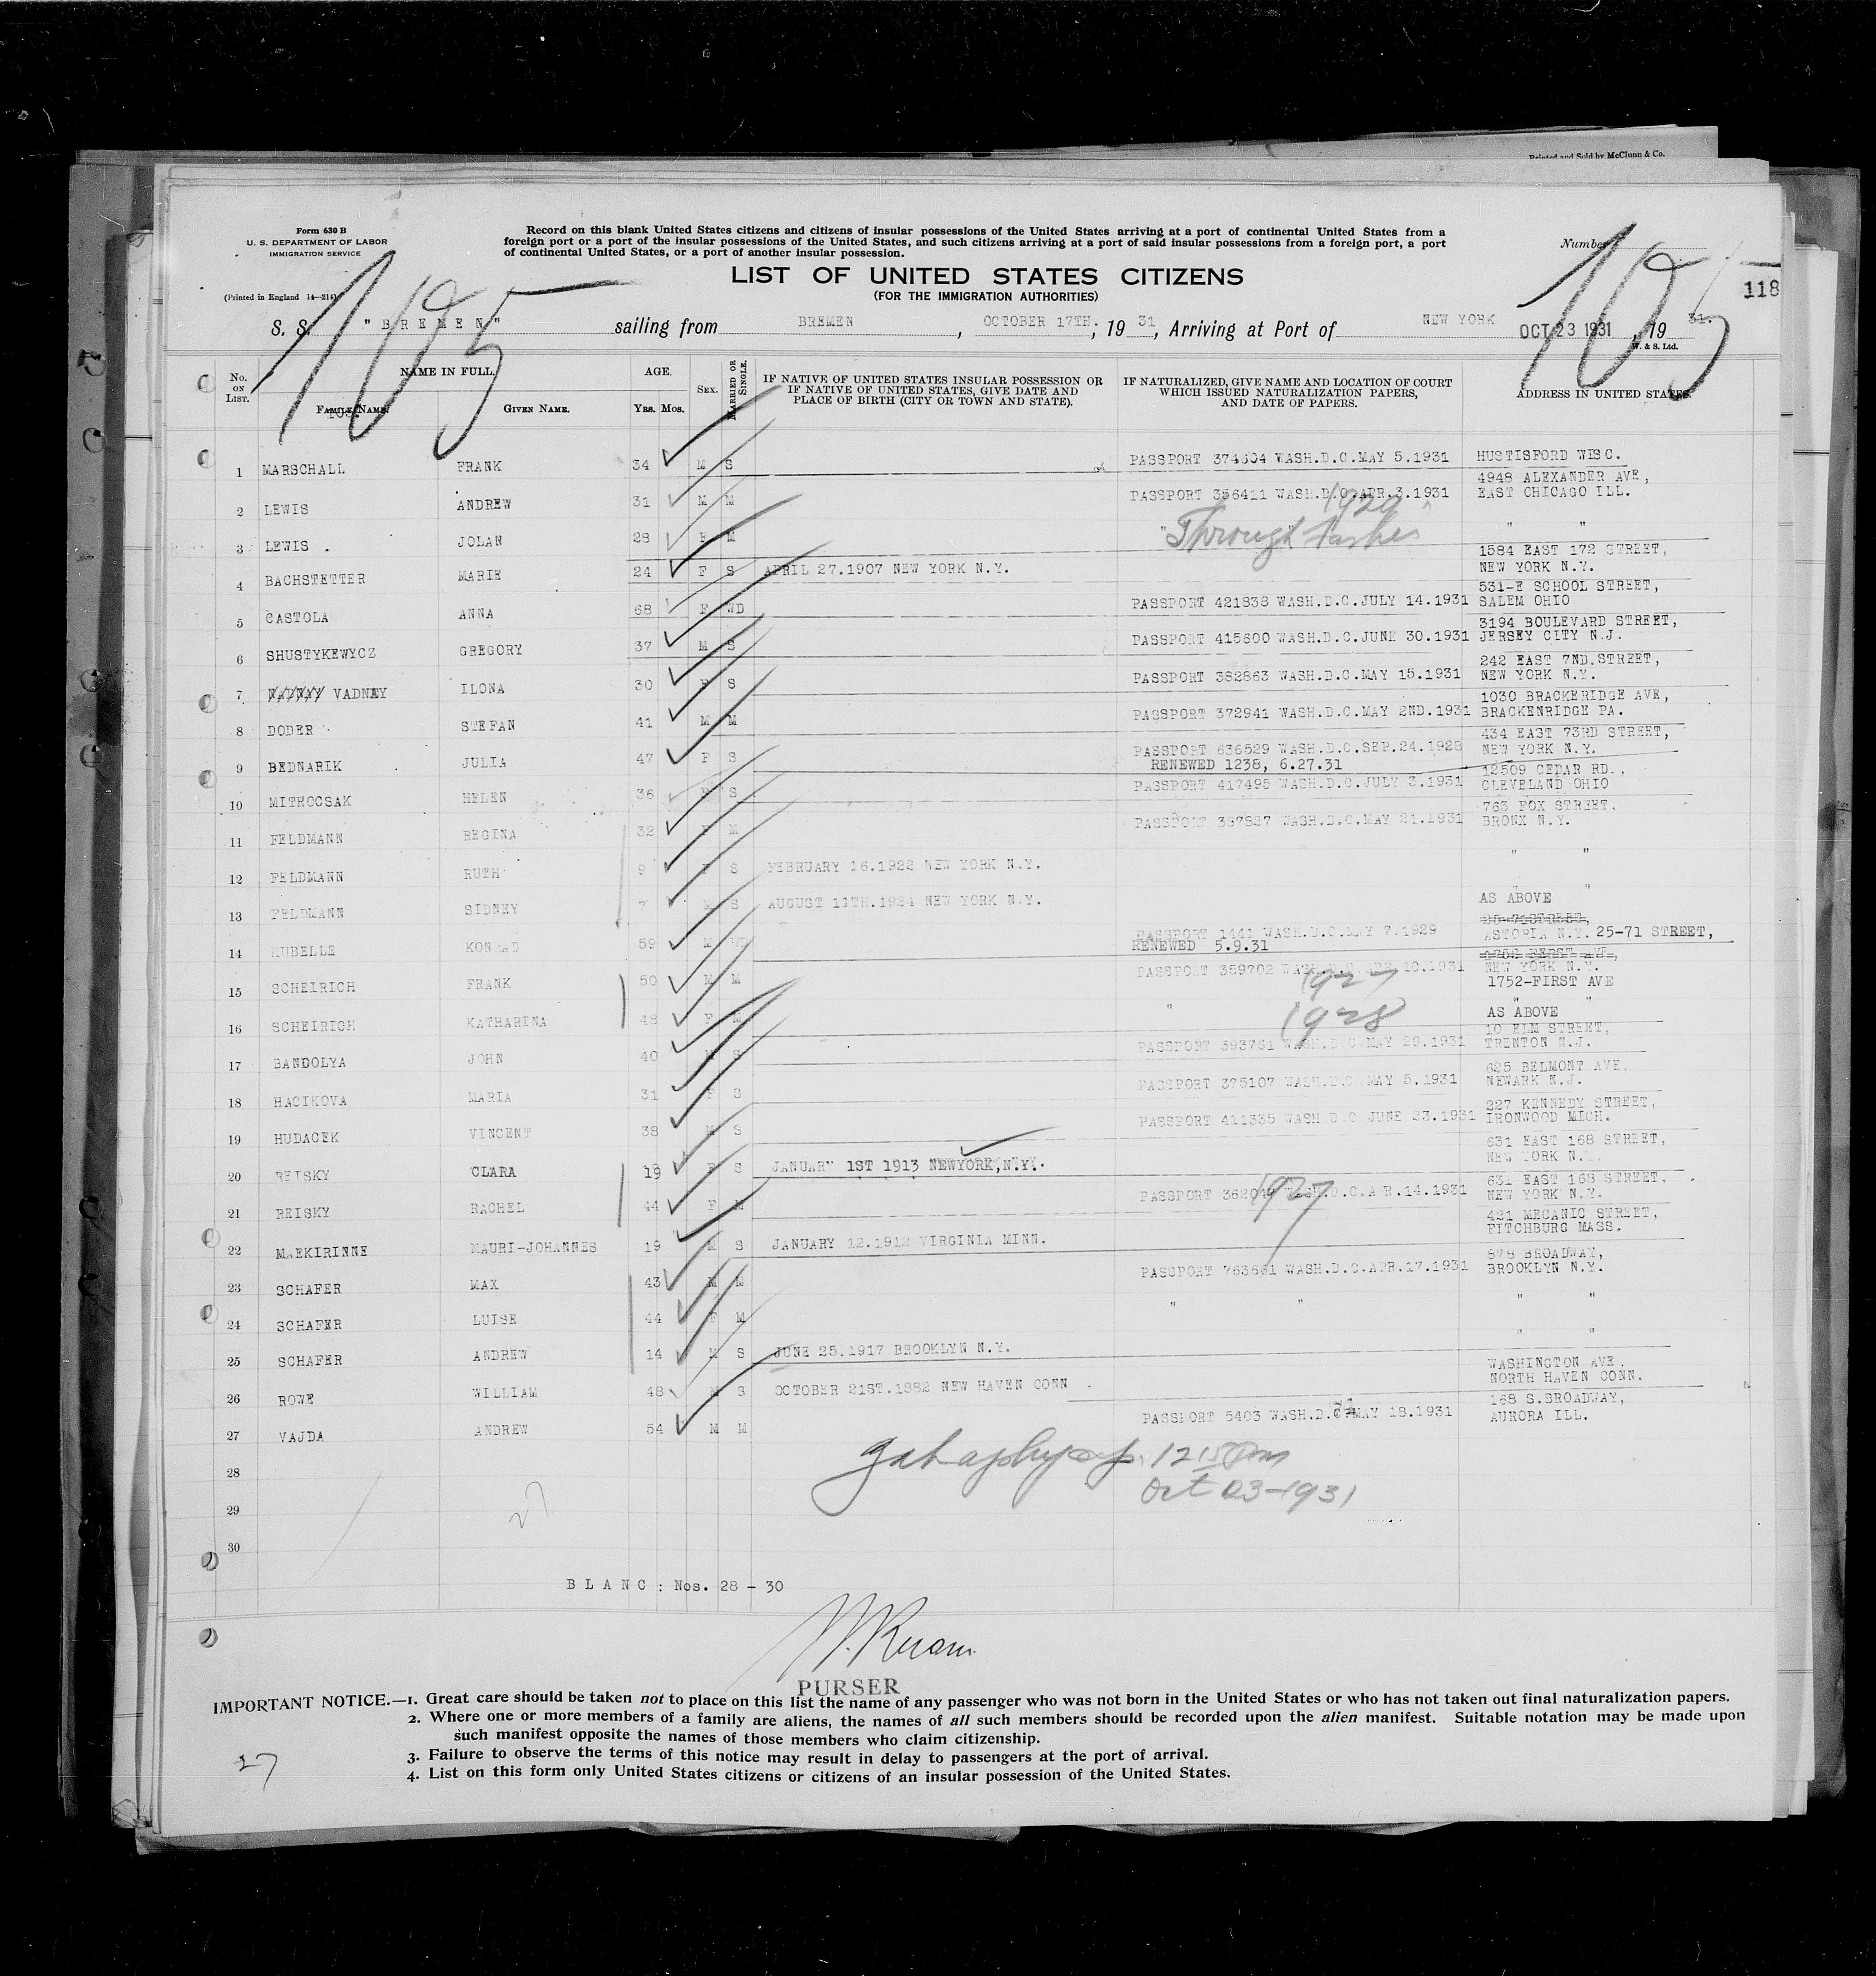 Printed and Sold by McClunn & Co.
Form 630 B
U. S. DEPARTMENT OF LABOR
IMMIGRATION SERVICE
(Printed in England 14—214)
Record on this blank United States citizens and citizens of insular possessions of the United States arriving at a port of continental United States from a
foreign port or a port of the insular possessions of the United States, and such citizens arriving at a port of said insular possessions from a foreign port, a port
of continental United States, or a port of another insular possession.
Number
105
105
118
LIST OF UNITED STATES CITIZENS
(FOR THE IMMIGRATION AUTHORITIES)
S. S. "BREMEN" sailing from BREMEN, OCTOBER 17TH; 19 31, Arriving at Port of NEW YORK OCT 23 1931, 19 31.
W. & S. Ltd.
No. ON LIST. NAME IN FULL. AGE. SEX. MARRIED OR SINGLE. IF NATIVE OF UNITED STATES INSULAR POSSESSION OR IF NATIVE OF UNITED STATES, GIVE DATE AND PLACE OF BIRTH (CITY OR TOWN AND STATE). IF NATURALIZED, GIVE NAME AND LOCATION OF COURT WHICH ISSUED NATURALIZATION PAPERS, AND DATE OF PAPERS. ADDRESS IN UNITED STATES.
FAMILY NAME. GIVEN NAME. Yrs. Mos.
1 MARSCHALL FRANK 34 M S PASSPORT 374504 WASH.D.C.MAY 5.1931 HUSTISFORD WISC.
2 LEWIS ANDREW 31 M M PASSPORT 356411 WASH.D.C.APR.3.1931 4948 ALEXANDER AVE, EAST CHICAGO ILL.
1920
3 LEWIS . JOLAN 28 F M " Through " " "
4 BACHSTETTER MARIE 24 F S APRIL 27.1907 NEW YORK N.Y. 1584 EAST 172 STREET, NEW YORK N.Y.
5 CASTOLA ANNA 68 F WD PASSPORT 421838 WASH.D.C.JULY 14.1931 531-E SCHOOL STREET, SALEM OHIO
6 SHUSTYKEWYCZ GREGORY 37 M S PASSPORT 415600 WASH.D.C.JUNE 30.1931 3194 BOULEVARD STREET, JERSEY CITY N.J.
7 VADNAY ILONA 30 F S PASSPORT 382863 WASH.D.C.MAY 15.1931 242 EAST 7ND.STREET, NEW YORK N.Y.
8 DODER STEFAN 41 M M PASSPORT 372941 WASH.D.C.MAY 2ND.1931 1030 BRACKERIDGE AVE, BRACKENRIDGE PA.
9 BEDNARIK JULIA 47 F S PASSPORT 636529 WASH.D.C.SEP.24.1928 434 EAST 73RD STREET, NEW YORK N.Y.
RENEWED 1238, 6.27.31
10 MITROCSAK HELEN 36 F S PASSPORT 417495 WASH.D.C.JULY 3.1931 12509 CEDAR RD., CLEVELAND OHIO
11 FELDMANN REGINA 32 F M PASSPORT 387827 WASH.D.C.MAY 21.1931 763 FOX STREET. BRONX N.Y.
12 FELDMANN RUTH 9 F S FEBRUARY 16.1922 NEW YORK N.Y. " "
13 FELDMANN SIDNEY 7 M S AUGUST 11TH.1924 NEW YORK N.Y. " " AS ABOVE
14 KUBELLE KONRAD 59 M WD PASSPORT 1441 WASH.D.C.MAY 7.1929 25-71STREET, ASTORIA N.Y. 25-71 STREET,
RENEWED 5.9.31
15 SCHEIRICH FRANK 50 M M PASSPORT 359702 WASH.D.C.APR.10.1931 NEW YORK N.Y.
1927 1752-FIRST AVE
16 SCHEIRICH KATHARINA 48 F M " " " AS ABOVE
1928
17 BANDOLYA JOHN 40 M S PASSPORT 393761 WASH.D.C.MAY 29.1931 10 ELM STREET, TRENTON N.J.
18 HACIKOVA MARIA 31 F S PASSPORT 375107 WASH.D.C MAY 5.1931 625 BELMONT AVE. NEWARK N.J.
19 HUDACEK VINCENT 38 M S PASSPORT 411335 WASH.D.C JUNE 23.1931 227 KENNEDY STREET, IRONWOOD MICH.
20 REISKY CLARA 19 F S JANUARY 1ST 1913 NEWYORK,N.Y. 631 EAST 168 STREET, NEW YORK N.
21 REISKY RACHEL 44 F M PASSPORT WASH.D.C.APR.14.1931 631 EAST 168 STREET. NEW YORK N.Y.
1927
22 MAEKIRINNE MAURI-JOHANNES 19 M S JANUARY 12.1912 VIRGINIA MINN. 421 MECANIC STREET, FITCHBURG MASS.
23 SCHAFER MAX 43 M M PASSPORT 763661 WASH.D.C.APR.17.1931 878 BROADWAY, BROOKLYN N.Y.
24 SCHAFER LUISE 44 F M " " " "
25 SCHAFER ANDREW 14 M S JUNE 25.1917 BROOKLYN N.Y. " "
26 ROWE WILLIAM 48 M S OCTOBER 21ST.1882 NEW HAVEN CONN . WASHINGTON AVE. NORTH HAVEN CONN.
27 VAJDA ANDREW 54 M M PASSPORT 5403 WASH.D.C.MAY 18.1931 168 S.BROADWAY, AURORA ILL.
28
29
30
27
1215 Pm
Oct 23-1931
BLANC: Nos. 28 - 30
PURSER
IMPORTANT NOTICE.—1. Great care should be taken not to place on this list the name of any passenger who was not born in the United States or who has not taken out final naturalization papers.
2. Where one or more members of a family are aliens, the names of all such members should be recorded upon the alien manifest. Suitable notation may be made upon
such manifest opposite the names of those members who claim citizenship.
3. Failure to observe the terms of this notice may result in delay to passengers at the port of arrival.
4. List on this form only United States citizens or citizens of an insular possession of the United States.
27